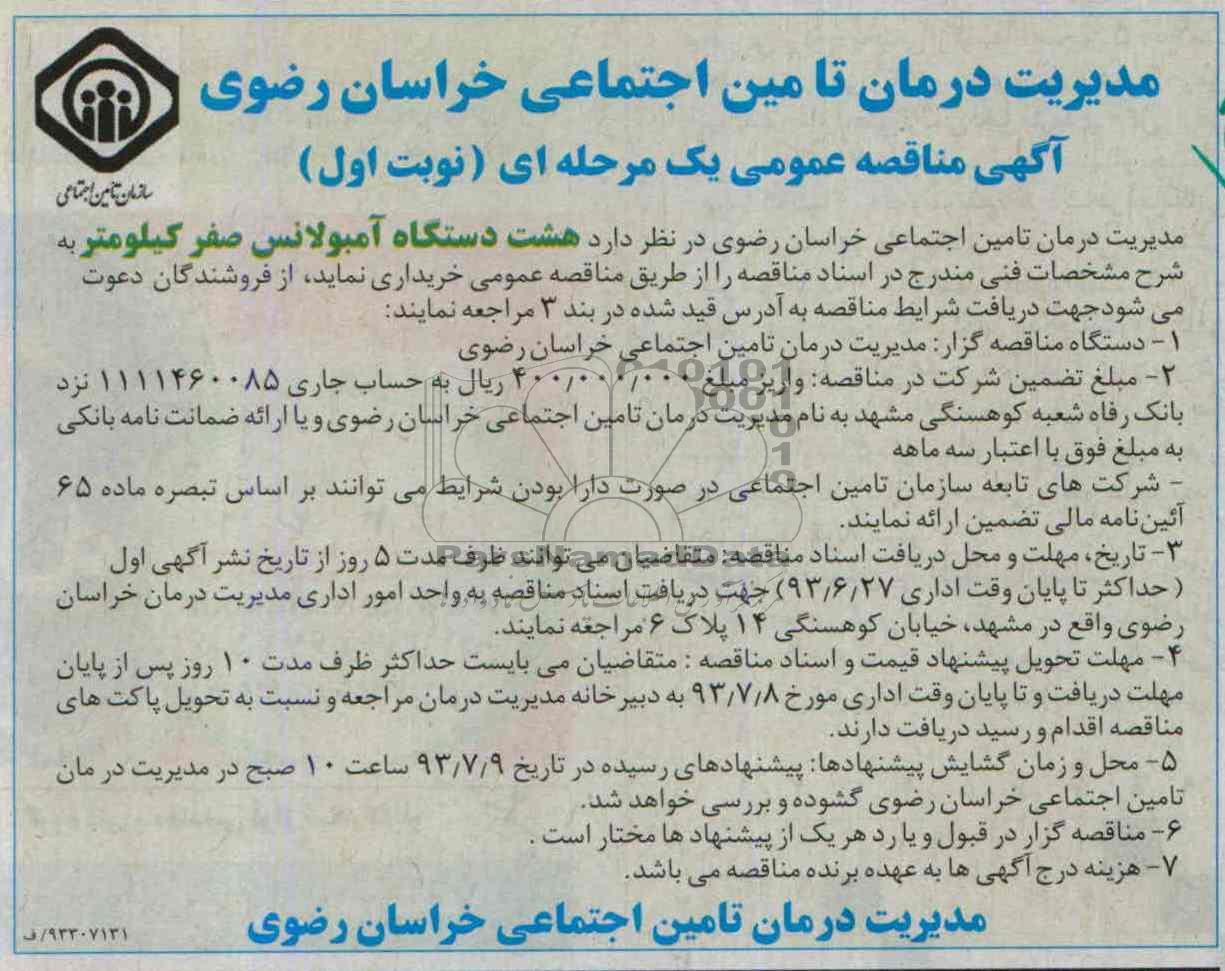 مدیریت درمان تامین اجتماعی خراسان رضوی
آگهی مناقصه عمومی یک مرحله ای (نوبت اول)
سازمان تأمین اجتماعی
مدیریت درمان تامین اجتماعی خراسان رضوی در نظر دارد هشت دستگاه آمبولانس صفر کیلومتر به
شرح مشخصات فنی مندرج در اسناد مناقصه را از طریق مناقصه عمومی خریداری نماید، از فروشندگان دعوت
می شودجهت دریافت شرایط مناقصه به آدرس قید شده در بند ۳ مراجعه نمایند:
۱- دستگاه مناقصه گزار: مدیریت درمان تامین اجتماعی خراسان رضوی
۲- مبلغ تضمین شرکت در مناقصه: واریز مبلغ ۴۰۰/۰۰۰/۰۰۰ ریال به حساب جاری ۱۱۱۱۴۶۰۰۸۵ نزد
بانک رفاه شعبه کوهسنگی مشهد به نام مدیریت درمان تامین اجتماعی خراسان رضوی و یا ارائه ضمانت نامه بانکی
به مبلغ فوق با اعتبار سه ماهه
- شرکت های تابعه سازمان تامین اجتماعی در صورت دارا بودن شرایط می توانند بر اساس تبصره ماده ۶۵
آئین‌نامه مالی تضمین ارائه نمایند.
۳- تاریخ، مهلت و محل دریافت اسناد مناقصه: متقاضیان می توانند ظرف مدت ۵ روز از تاریخ نشر آگهی اول
(حداکثر تا پایان وقت اداری ۹۳/۶/۲۷) جهت دریافت اسناد مناقصه به واحد امور اداری مدیریت درمان خراسان
رضوی واقع در مشهد، خیابان کوهسنگی ۱۴ پلاک ۶ مراجعه نمایند.
۴- مهلت تحویل پیشنهاد قیمت و اسناد مناقصه : متقاضیان می بایست حداکثر ظرف مدت ۱۰ روز پس از پایان
مهلت دریافت و تا پایان وقت اداری مورخ ۹۳/۷/۸ به دبیرخانه مدیریت درمان مراجعه و نسبت به تحویل پاکت های
مناقصه اقدام و رسید دریافت دارند.
۵- محل و زمان گشایش پیشنهادها: پیشنهادهای رسیده در تاریخ ۹۳/۷/۹ ساعت ۱۰ صبح در مدیریت درمان
تامین اجتماعی خراسان رضوی گشوده و بررسی خواهد شد.
۶- مناقصه گزار در قبول و یا رد هر یک از پیشنهاد ها مختار است .
۷- هزینه درج آگهی ها به عهده برنده مناقصه می باشد.
مدیریت درمان تامین اجتماعی خراسان رضوی
۹۳۳۰۷۱۳۱/ف